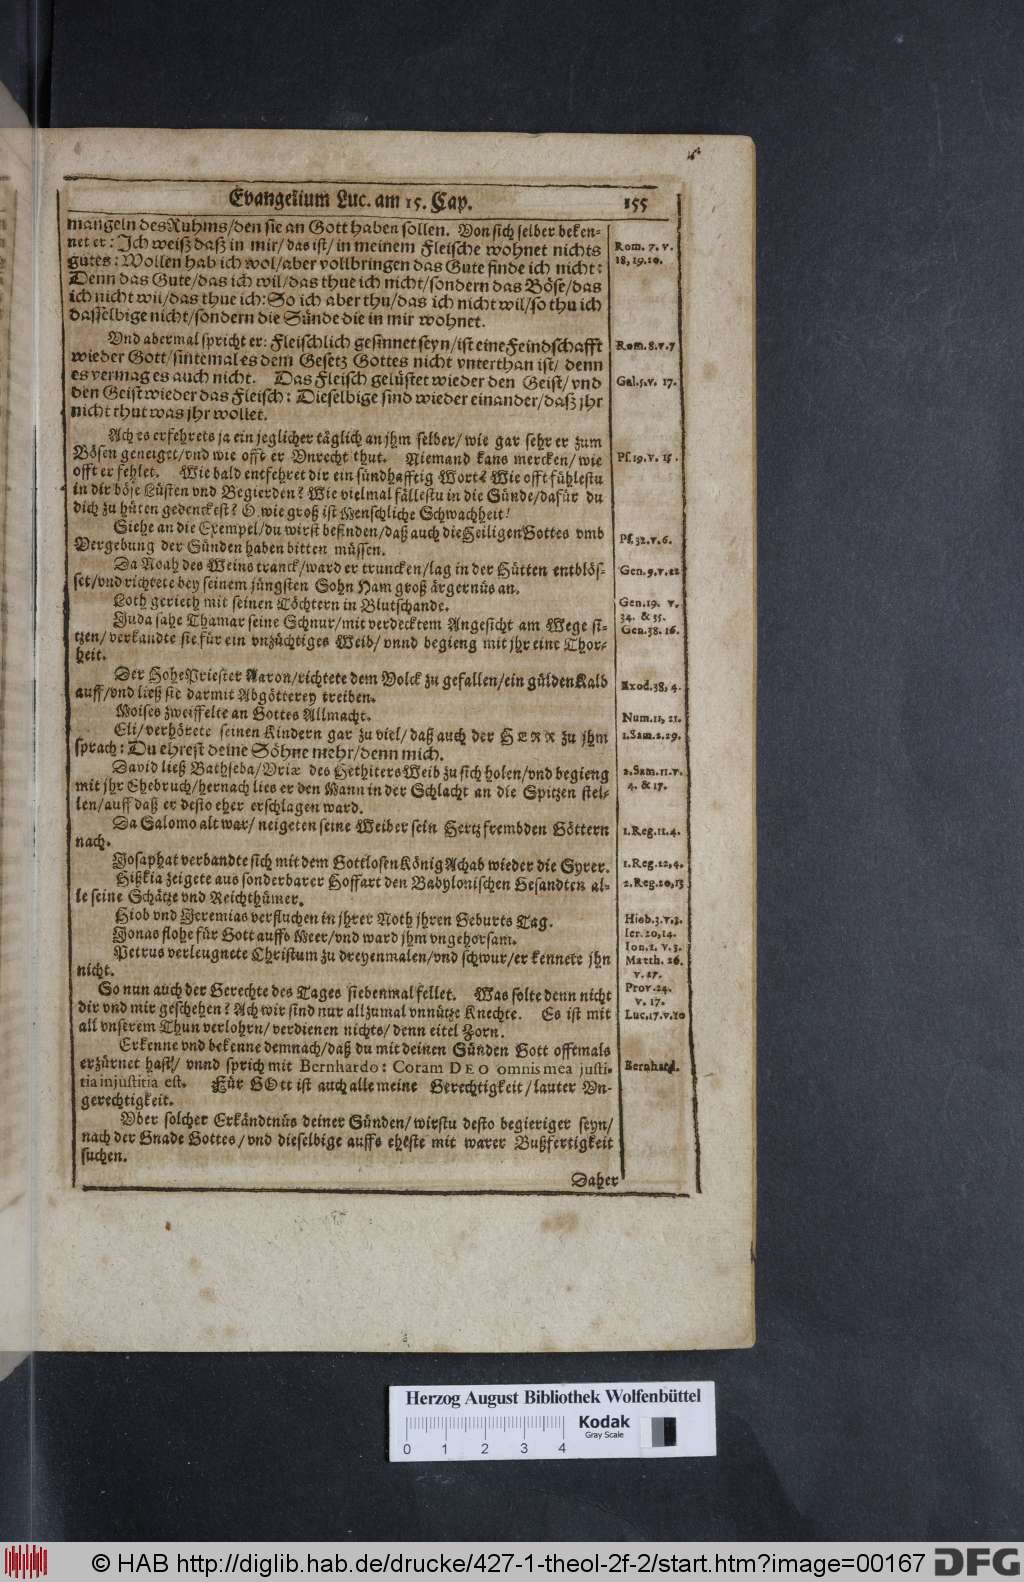 Evangelium Luc. am 15. Cap. 155
mangeln des Ruhms/den sie an Gott haben sollen. Von sich selber beken-
net er: Ich weiß daß in mir/das ist/in meinem Fleische wohnet nichts
gutes: Wollen hab ich wol/aber vollbringen das Gute finde ich nicht:
Denn das Gute/das ich wil/das thue ich nicht/sondern das Böse/das
ich nicht wil/das thue ich: So ich aber thu/das ich nicht wil/so thu ich
dasselbige nicht/sondern die Sünde die in mir wohnet.
Rom. 7. v.
18, 19. 20.
Vnd abermal spricht er: Fleischlich gesinnet seyn/ist eine Feindschafft
wieder Gott/sintemal es dem Gesetz Gottes nicht vnterthan ist/ denn
es vermag es auch nicht. Das Fleisch gelüstet wieder den Geist/ vnd
den Geist wieder das Fleisch: Dieselbige sind wieder einander/daß jhr
nicht thut was jhr wollet.
Rom. 8. v. 7
Gal. 5. v. 17.
Ach es erfehrets ja ein jeglicher täglich an jhm selber/ wie gar sehr er zum
Bösen geneiget/vnd wie offt er Vnrecht thut. Niemand kans mercken/ wie
offt er fehlet. Wie bald entfehret dir ein sündhafftig Wort? Wie offt fühlestu
in dir böse Lüsten vnd Begierden? Wie vielmal fällestu in die Sünde/dafür du
dich zu hüten gedenckest? O wie groß ist Menschliche Schwachheit!
Ps. 19. v. 13.
Siehe an die Exempel/du wirst befinden/daß auch die Heiligen Gottes vmb
Vergebung der Sünden haben bitten müssen.
Ps. 32. v. 6.
Da Noah des Weins tranck/ward er truncken/lag in der Hütten entblös-
set/vnd richtete bey seinem jüngsten Sohn Ham groß ärgernüs an.
Gen. 9. v. 22
Loth gerieth mit seinen Töchtern in Blutschande.
Juda sahe Thamar seine Schnur/mit verdecktem Angesicht am Wege si-
tzen/ verkandte sie für ein vnzüchtiges Weib/ vnnd begieng mit jhr eine Thor-
heit.
Gen. 19. v.
34. & 35.
Gen. 38. 16.
Der Hohe Priester Aaron/richtete dem Volck zu gefallen/ein gülden Kalb
auff/vnd ließ sie darmit Abgötterey treiben.
Exod. 38, 4.
Moises zweiffelte an Gottes Allmacht.
Num. 11, 21.
Eli/verhörete seinen Kindern gar zu viel/daß auch der HERR zu jhm
sprach: Du ehrest deine Söhne mehr/denn mich.
1. Sam. 2. 29.
David ließ Bathseba/Vriæ des Hethiters Weib zu sich holen/vnd begieng
mit jhr Ehebruch/hernach lies er den Mann in der Schlacht an die Spitzen stel-
len/auff daß er desto eher erschlagen ward.
2. Sam. 11. v.
4. & 17.
Da Salomo alt war/ neigeten seine Weiber sein Hertz frembden Göttern
nach.
1. Reg. 11. 4.
Josaphat verbandte sich mit dem Gottlosen König Achab wieder die Syrer.
1. Reg. 12, 4.
Hißkia zeigete aus sonderbarer Hoffart den Babylonischen Gesandten al-
le seine Schätze vnd Reichthümer.
2. Reg. 20, 13
Hiob vnd Jeremias verfluchen in jhrer Noth jhren Geburts Tag.
Hiob. 3. v. 3.
Ier. 20, 14.
Jonas flohe für Gott auffs Meer/vnd ward jhm vngehorsam.
Ion. 1. v. 3.
Petrus verleugnete Christum zu dreyenmalen/vnd schwur/er kennete jhn
nicht.
Matth. 26.
v. 27.
So nun auch der Gerechte des Tages siebenmal fellet. Was solte denn nicht
dir vnd mir geschehen? Ach wir sind nur allzumal vnnütze Knechte. Es ist mit
all vnserem Thun verlohrn/ verdienen nichts/ denn eitel Zorn.
Prov. 24.
v. 17.
Luc. 17. v. 10
Erkenne vnd bekenne demnach/daß du mit deinen Sünden Gott offtmals
erzürnet hast/ vnnd sprich mit Bernhardo: Coram DEO omnis mea justi-
tia injustitia est. Für GOtt ist auch alle meine Gerechtigkeit/lauter Vn-
gerechtigkeit.
Bernhard.
Vber solcher Erkändtnüs deiner Sünden/ wirstu desto begieriger seyn/
nach der Gnade Gottes/vnd dieselbige auffs eheste mit warer Bußfertigkeit
suchen.
Daher
Herzog August Bibliothek Wolfenbüttel
Kodak
Gray Scale
0 1 2 3 4
© HAB http://diglib.hab.de/drucke/427-1-theol-2f-2/start.htm?image=00167
DFG